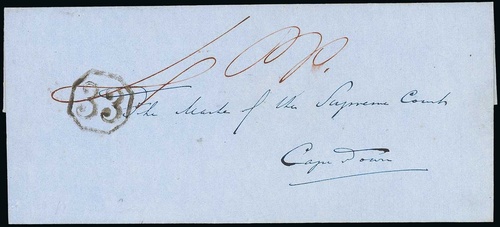 33
The Master of the Supreme Court
Cape Town